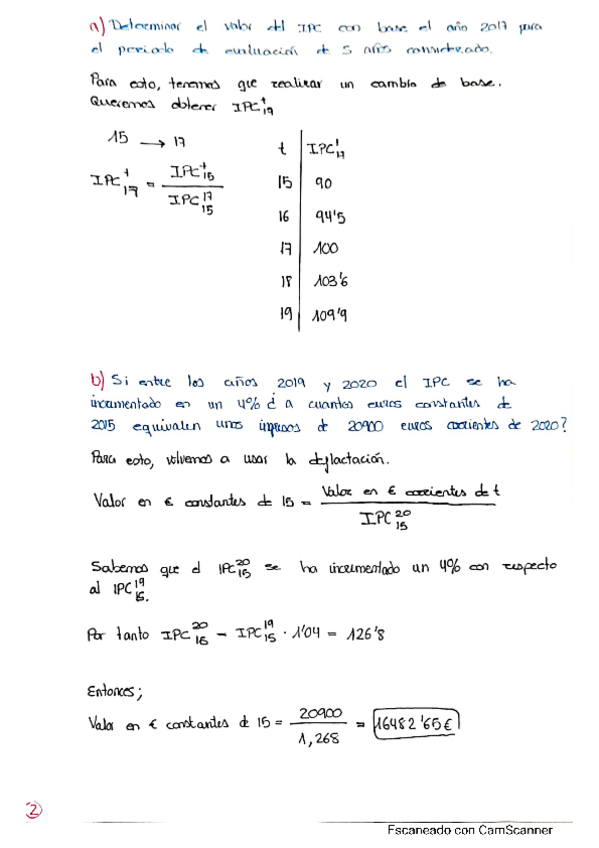 a) Determinar el valor del IPC con base el año 2017 para
el periodo de evaluación de 5 años considerado.
Para esto, tenemos que realizar un cambio de base.
Queremos obtener IPC^t_17
15 → 17
IPC^t_17 = IPC^t_15 / IPC^17_15
t | IPC^t_17
15 | 90
16 | 94'5
17 | 100
18 | 103'6
19 | 109'9
b) Si entre los años 2019 y 2020 el IPC se ha
incrementado en un 4% ¿ a cuantos euros constantes de
2015 equivalen unos ingresos de 20900 euros corrientes de 2020?
Para esto, volvemos a usar la deflactación.
Valor en € constantes de 15 = Valor en € corrientes de t / IPC^20_15
Sabemos que el IPC^20_15 se ha incrementado un 4% con respecto
al IPC^19_15.
Por tanto IPC^20_15 = IPC^19_15 · 1'04 = 126'8
Entonces;
Valor en € constantes de 15 = 20900 / 1,268 = 16482'65€
2
Escaneado con CamScanner